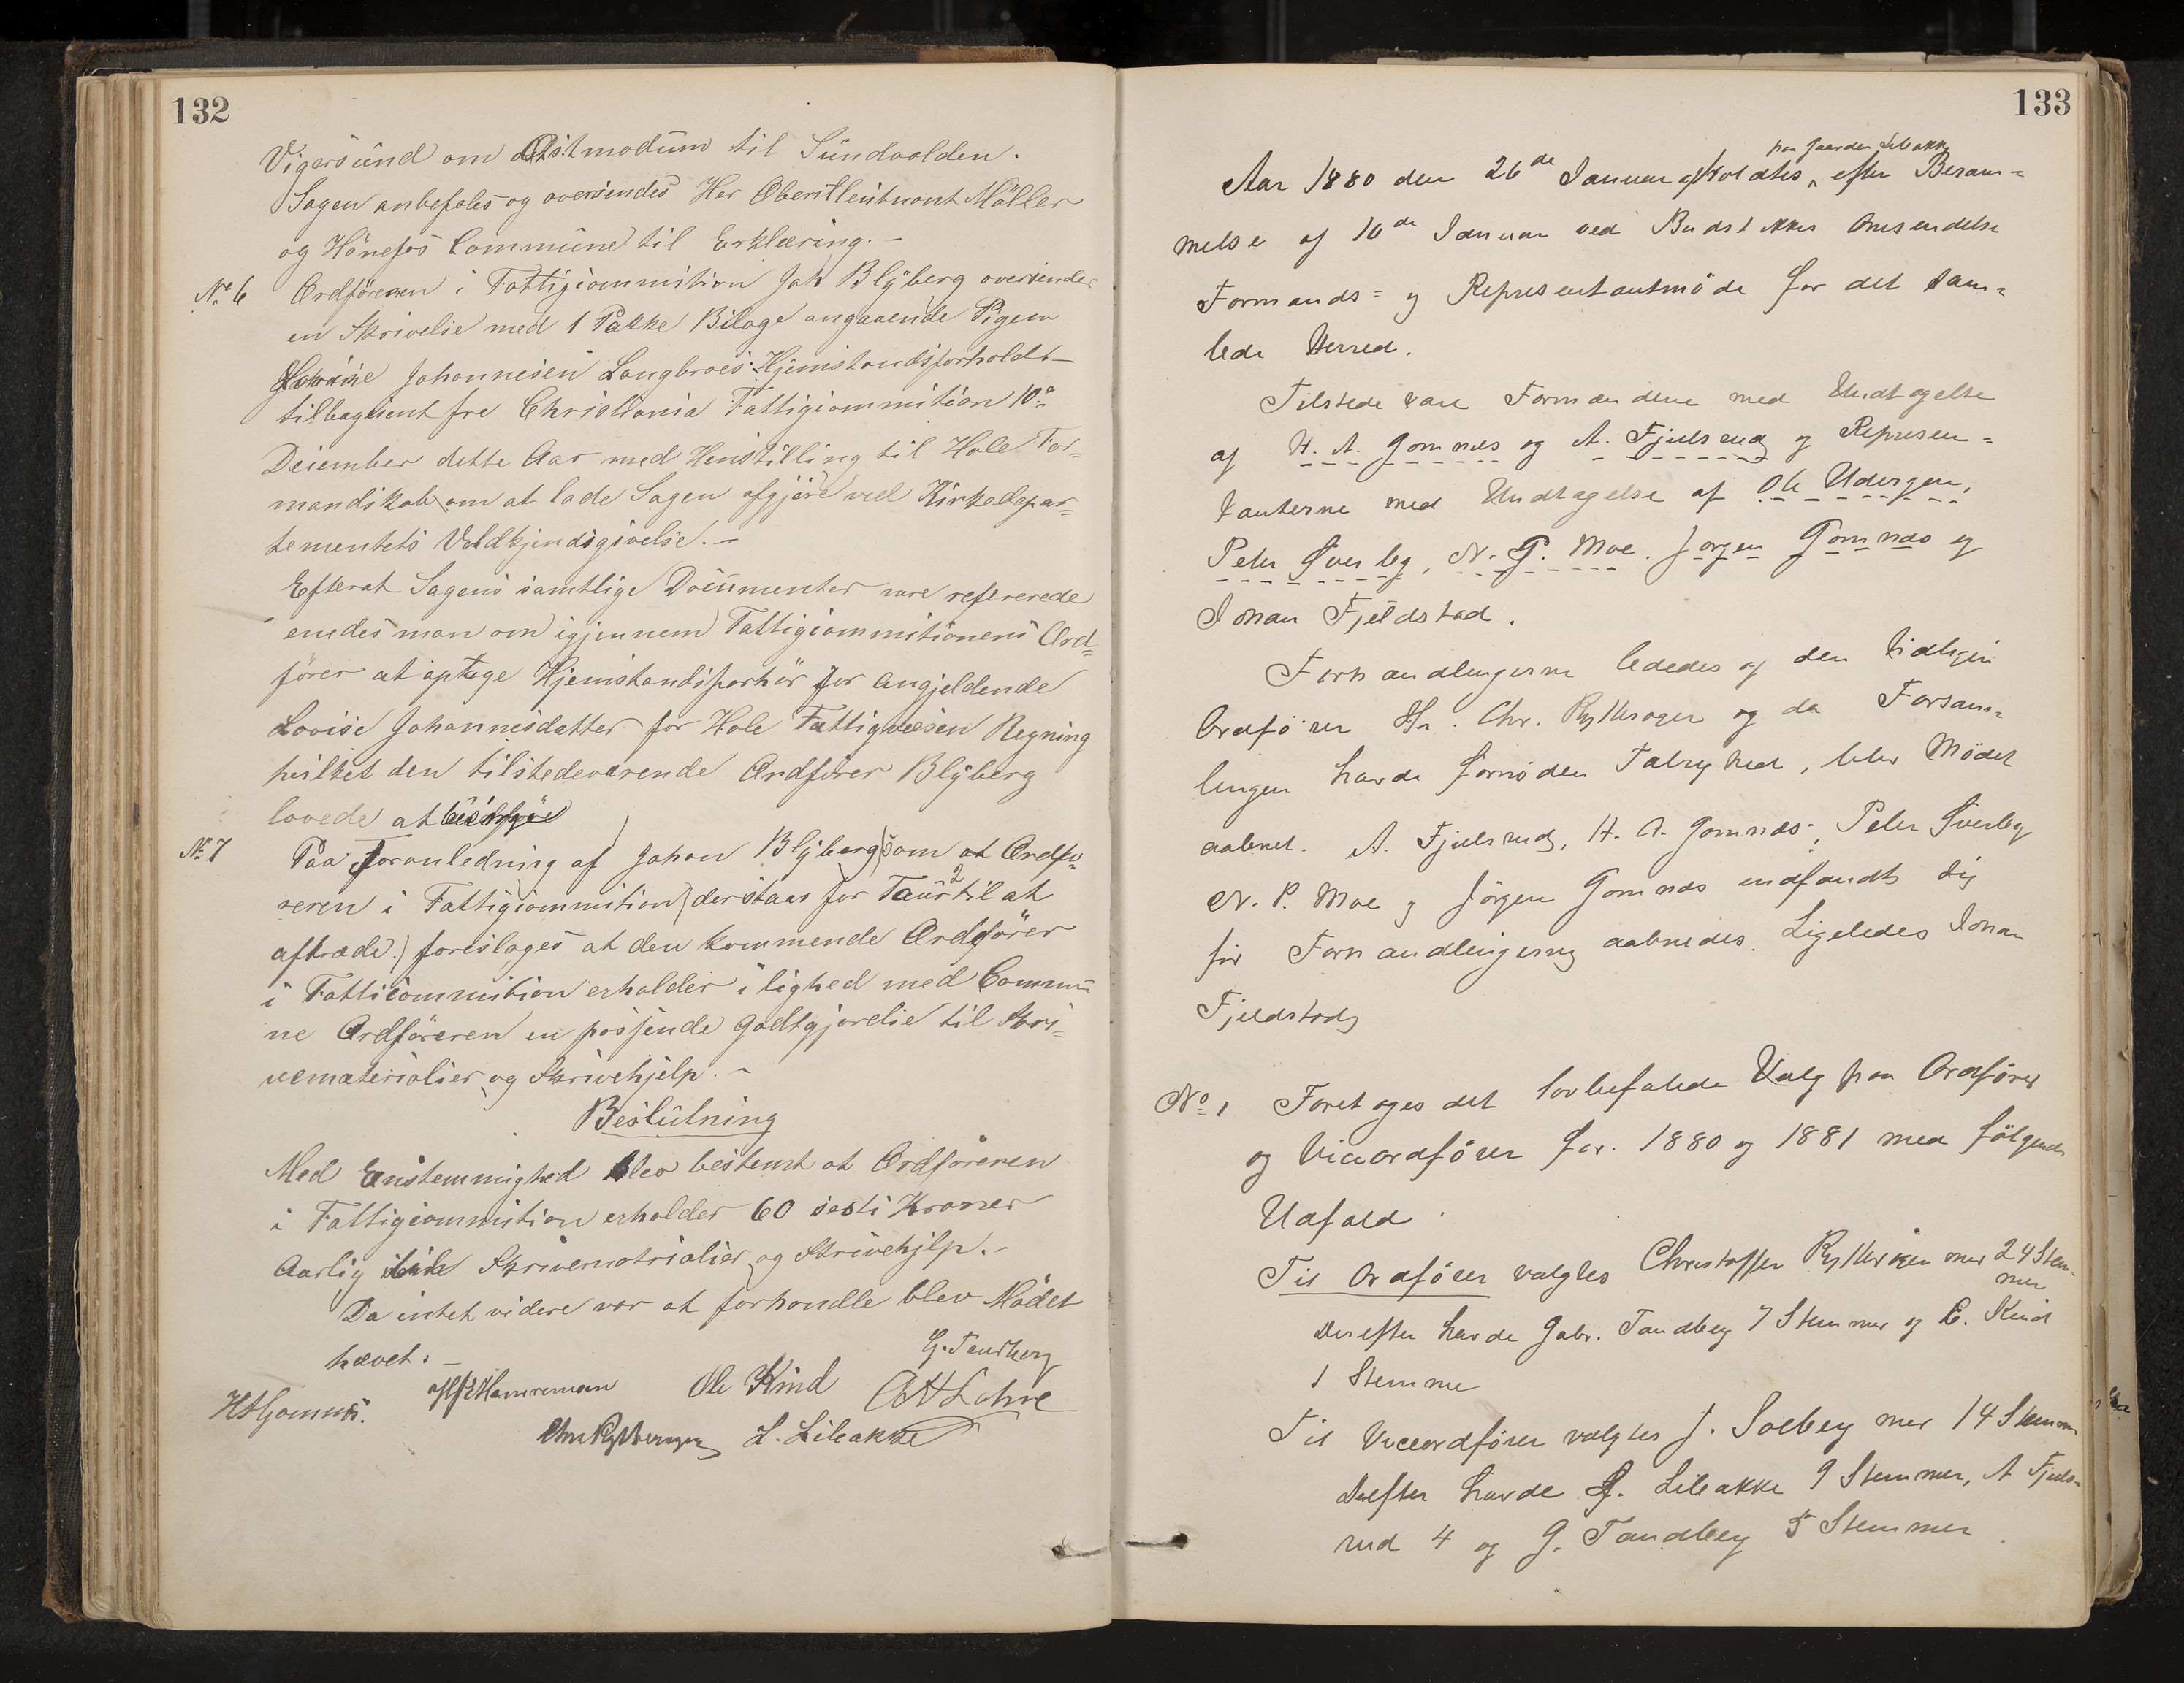 132
Vigersund om Astmodum til Sundvolden.
Sagen anbefales og oversendes Her Oberstleutnant Møller
og Hönefos Commune til Erklæring. –
No 6 Ordføreren i Fattigcommition Joh Blyberg oversender
en Skrivelse med 1 Pakke Bilage angaaende Pigen
Johannesen Langbroes Hjemstandsforholdt
tilbagsent fra Christiania Fattigcommition 10de
December dette Aar med Henstilling til Hole For=
mandskab om at lade Sagen afgjøre ved Kirkedepar=
tementets Voldkjendsgivelse. –
Efterat Sagens samtlige Documenter vare refererede
enedes man om igjennem Fattigcommitionens Ord=
fører at optage Hjemstandsforhör for angjeldende
Lovise Johannesdatter for Hole Fattigvæsen Regning
hvilket den tilstedeværende Ordfører Blyberg
lovede at besørge
No 7 Paa Foranledning af Johan Blyberg som at Ordfø=
reren i Fattigcommition der staar for Tour til at
aftræde foreslages at den kommende Ordfører
i Fatticommition erholder i lighed med Commu=
ne Ordføreren en passende Godtgjørelse til Skri=
vematerialier og Skrivehjelp. –
Beslutning
Med Enstemmighed blev bestemt at Ordføreren
i Fattigcommition erholder 60 sexti Kroner
Aarlig til Skrivematrialier og Skrivehjelp. –
Da intet videre var at forhandle blev Mødet
hævet. –
G. Tandberg
HAGomnæs. Ole Kind A Lohre
Chr Rytterager L. Lileakke
133
paa Gaarden Lileakke
Aar 1880 den 26de Januar afholdtes efter Beram=
melse af 10de Januar ved Budstikkes Omsendelse
Formands= og Representantmøde for det sam=
lede Herred.
Tilstede vare Formændene med Undtagelse
af H. A. Gomnæs og A. Fjulsrud og Represen=
tanterne med Undtagelse af Ole Udengen,
Peter Sverleg, N. P. Moe. Jørgen Gomnæs og
Johan Fjeldstad.
Forhandlingerne lededes af den tidligere
Ordfører Hr. Chr. Rytterager og da Forsam=
lingen havde fornøden Talrighed, blev Mødet
aabnet. A. Fjulsrud, H. A. Gomnæs, Peter Sverleg
N. P. Moe og Jörgen Gomnæs indfandt sig
før Forhandlingerne aabnedes. Ligeledes Johan
Fjeldstad
No 1 Foretoges det lovbefalede Valg paa Ordfører
og Viceordfører for 1880 og 1881 med følgende
Udfald.
Til Ordfører valgtes Christoffer Rytterager med 24 Stem=
mer
Derefter havde Gabr. Tandberg 7 Stemmer og O. Kind
1 Stemme
Til Viceordfører valgtes J. Solberg med 14 Stemmer
Derefter havde L. Lileakke 9 Stemmer, A Fjuls=
rud 4 og G. Tandberg 5 Stemmer.